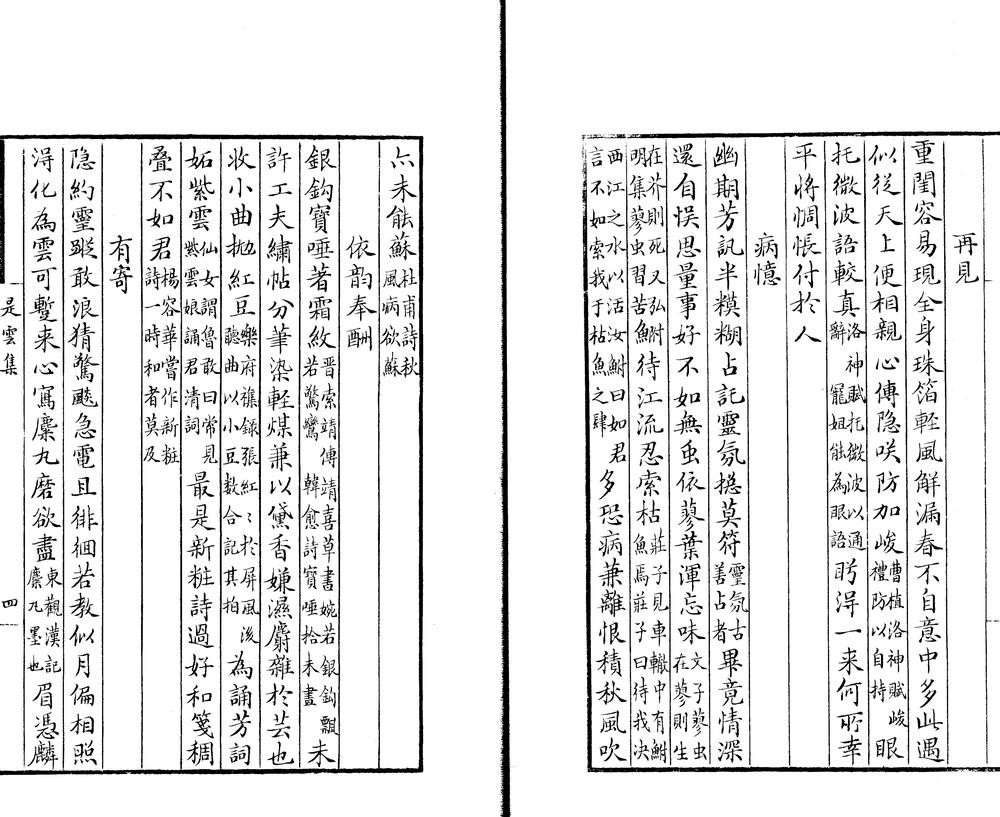 再見
重閨容易現全身珠箔輕風解漏春不自意中多此遇
似從天上便相親心傳隐咲防加峻曹植洛神賦峻禮防以自持眼
托微波語較真洛神賦托微波以通辭寵姐能為眼語盻淂一来何所幸
平將惆悵付於人
病憶
幽期芳訊半糢糊占託靈氛摠莫符靈氛古善占者畢竟情深
還自悮思量事好不如無虫依蓼葉渾忘味文子蓼虫在蓼則生
在芥則死又弘明集蓼虫習苦鮒待江流忍索枯莊子見車轍中有鮒魚焉莊子曰待我决
西江之水以活汝鮒曰如君言不如索我于枯魚之肆多恐病兼離恨積秋風吹
六未能蘇杜甫詩秋風病欲蘇
依韵奉酬
銀鈎寶唾著霜紋晋索靖傳靖喜草書婉若銀鈎飄若驚鸞韓愈詩寶唾拾未盡未
許工夫繡帖分筆染輕煤兼以黛香嫌濕麝雜於芸也
收小曲抛紅豆樂府雜録張紅ミ於屏風後聽曲以小豆数合記其拍為誦芳詞
妬紫雲仙女謂魯敢曰常見紫雲娘誦君清詞最是新粧詩過好和箋稠
叠不如君楊容華嘗作新粧詩一時和者莫及
有寄
隐約靈蹤敢浪猜驚飈急電且徘徊若教似月偏相照
淂化為雲可蹔来心寫麋丸磨欲盡東觀漢記麋丸墨也眉憑麟
是雲集
四